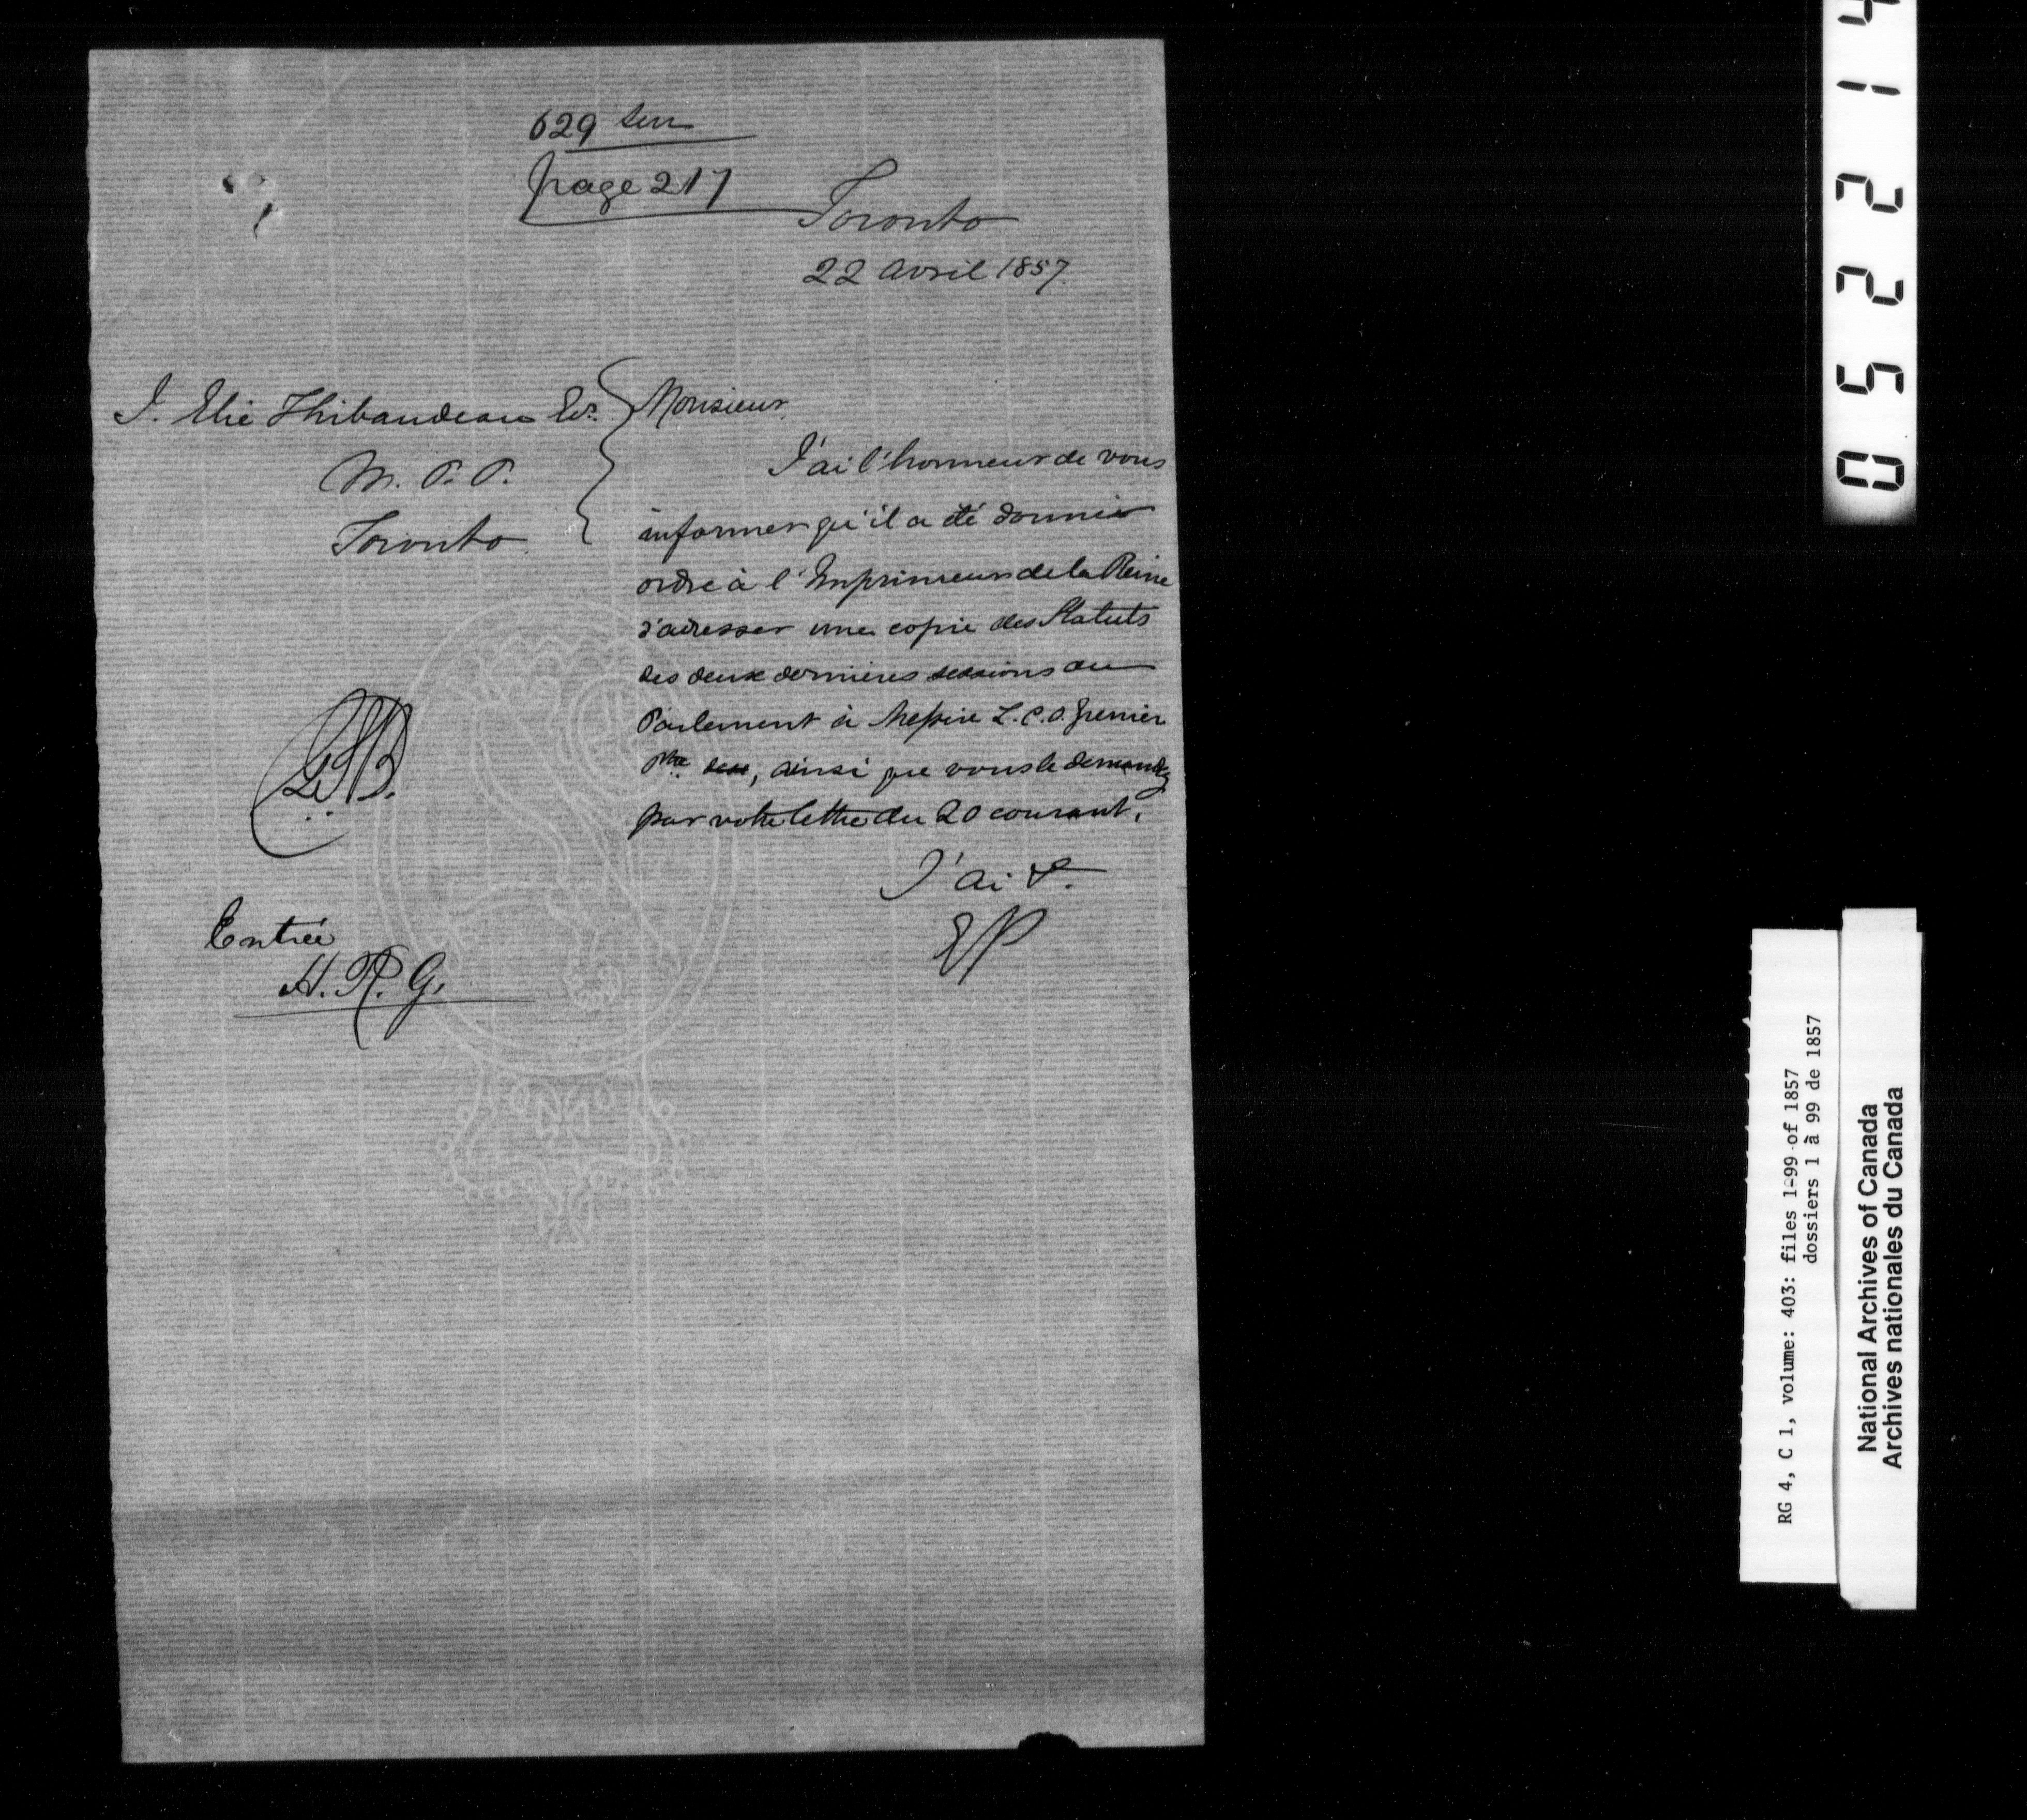 629
page 217
Toronto
22 Avril 1857.
J. Elie Thibaudeau Ecr.
M. P. P.
Toronto
Monsieur
J'ai l'honneur de vous
informer qu'il a été donnér
ordre à l'Imprimeur de la Reine
d'adresser une copie des Statuts
des deux dernières sessions du
Parlement à Messire L. C. O. Grenier
Ptre, ainsi que vous le demandez
par votre lettre du 20 courant.
J'ai &.
EP
Entrée
H. R. G.
0 5 2 2 1 4
RG 4, C 1, volume: 403: files 1-99 of 1857
dossiers 1 à 99 de 1857
National Archives of Canada
Archives nationales du Canada